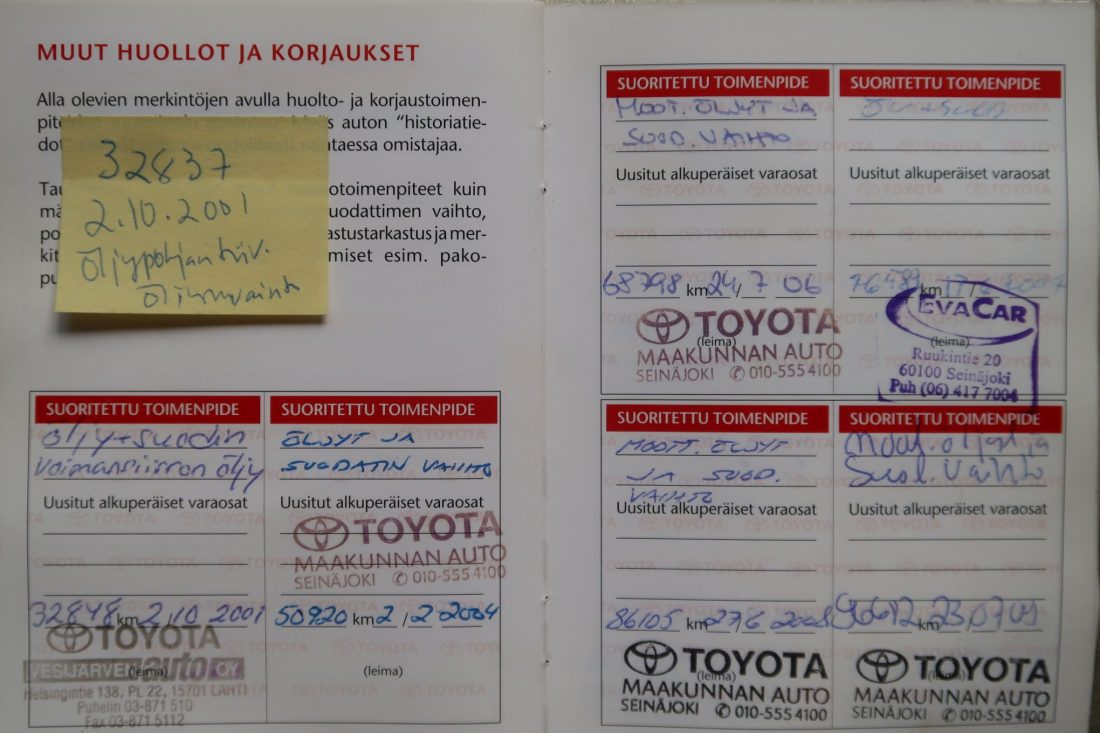 MUUT HUOLLOT JA KORJAUKSET
Alla olevien merkintöjen avulla huolto- ja korjaustoimen-
auton "historiatie-
omistajaa.
32837
2.10.2001
öljypohjan tiiv.
otoimenpiteet kuin
uodattimen vaihto,
astustarkastus ja mer-
miset esim. pako-
SUORITETTU TOIMENPIDE
öljy+suodin
voimansiirron öljy
Uusitut alkuperäiset varaosat
32848 km 2/10 2001
TOYOTA
VESIJÄRVEN auto OY
(leima)
Helsingintie 138, PL 22, 15701 LAHTI
Puhelin 03-871 510
Fax 03-871 5112
SUORITETTU TOIMENPIDE
ÖLJYT JA
SUODATIN VAIHTO
Uusitut alkuperäiset varaosat
TOYOTA
MAAKUNNAN AUTO
SEINÄJOKI ✆ 010-555 4100
50920 km 2/2 2004
(leima)
SUORITETTU TOIMENPIDE
MOOT. ÖLJYT JA
SUOD. VAIHTO
Uusitut alkuperäiset varaosat
68798 km 24/7 06
TOYOTA
(leima)
MAAKUNNAN AUTO
SEINÄJOKI ✆ 010-555 4100
SUORITETTU TOIMENPIDE
Uusitut alkuperäiset varaosat
km
EVACAR
(leima)
Ruukintie 20
60100 Seinäjoki
Puh (06) 417 7004
SUORITETTU TOIMENPIDE
MOOTT. ÖLJYT
JA SUOD.
VAIHTO
Uusitut alkuperäiset varaosat
86105 km 27/6 2008
TOYOTA
(leima)
MAAKUNNAN AUTO
SEINÄJOKI ✆ 010-555 4100
SUORITETTU TOIMENPIDE
Moot. öljyt ja
Suod. Vaihto
Uusitut alkuperäiset varaosat
96612 km 23/07 09
TOYOTA
(leima)
MAAKUNNAN AUTO
SEINÄJOKI ✆ 010-555 4100